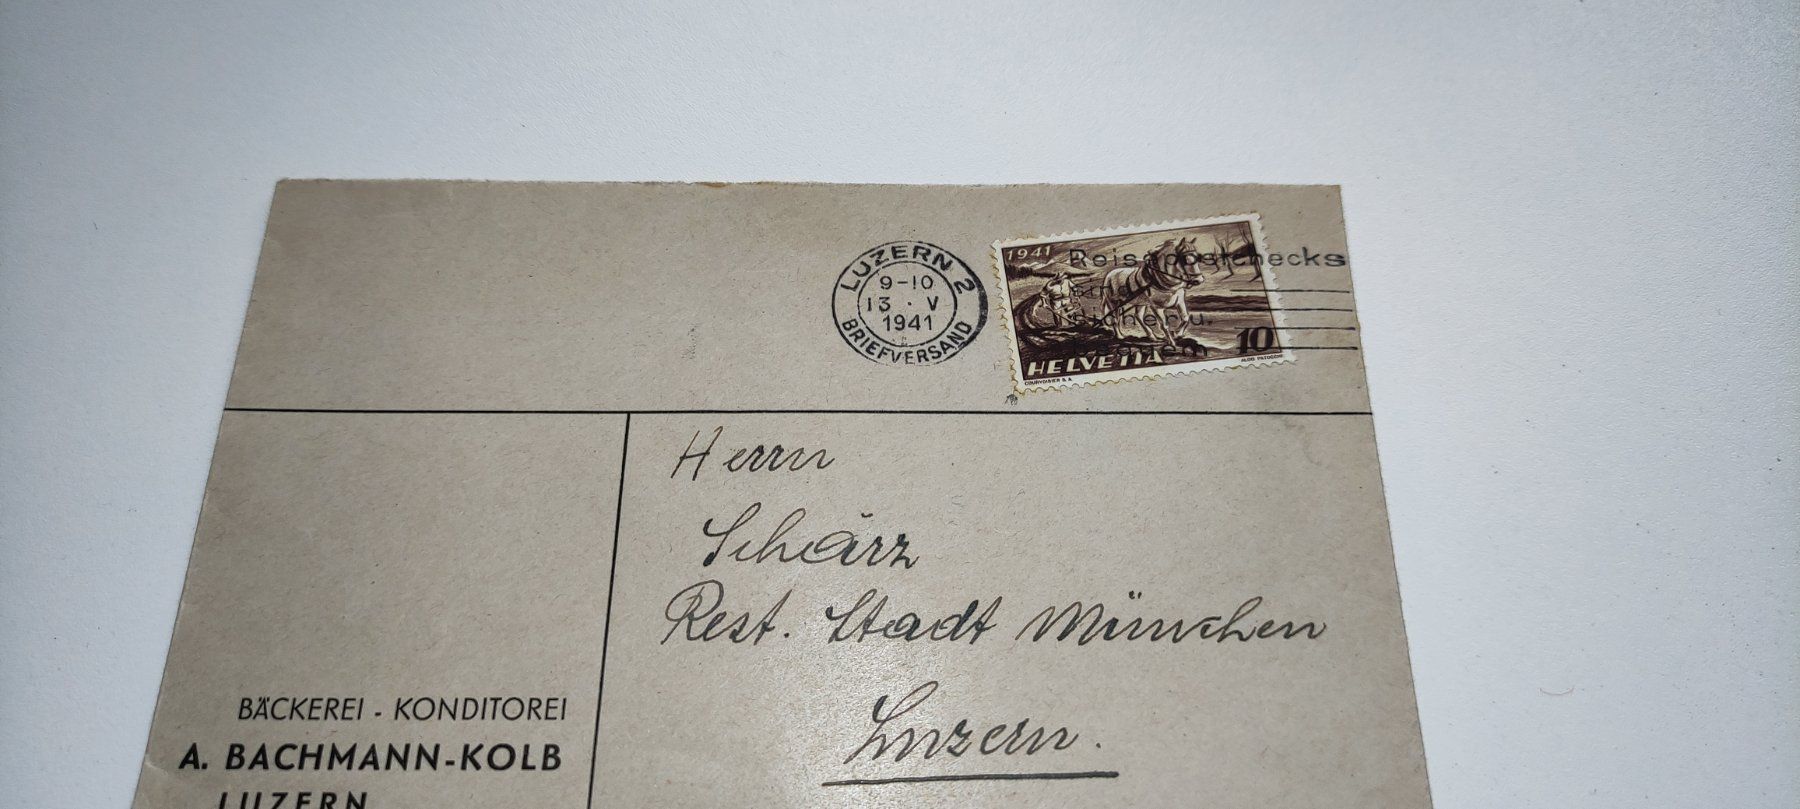 LUZERN 2
9-10
13 · V
1941
BRIEFVERSAND
1941
Reisepostchecks
sind
sicher u.
bequem
10
HELVETIA
COURVOISIER S.A.
ALDO PATOCCHI
Herrn
Schärz
Rest. Stadt München
Luzern.
BÄCKEREI - KONDITOREI
A. BACHMANN-KOLB
LUZERN